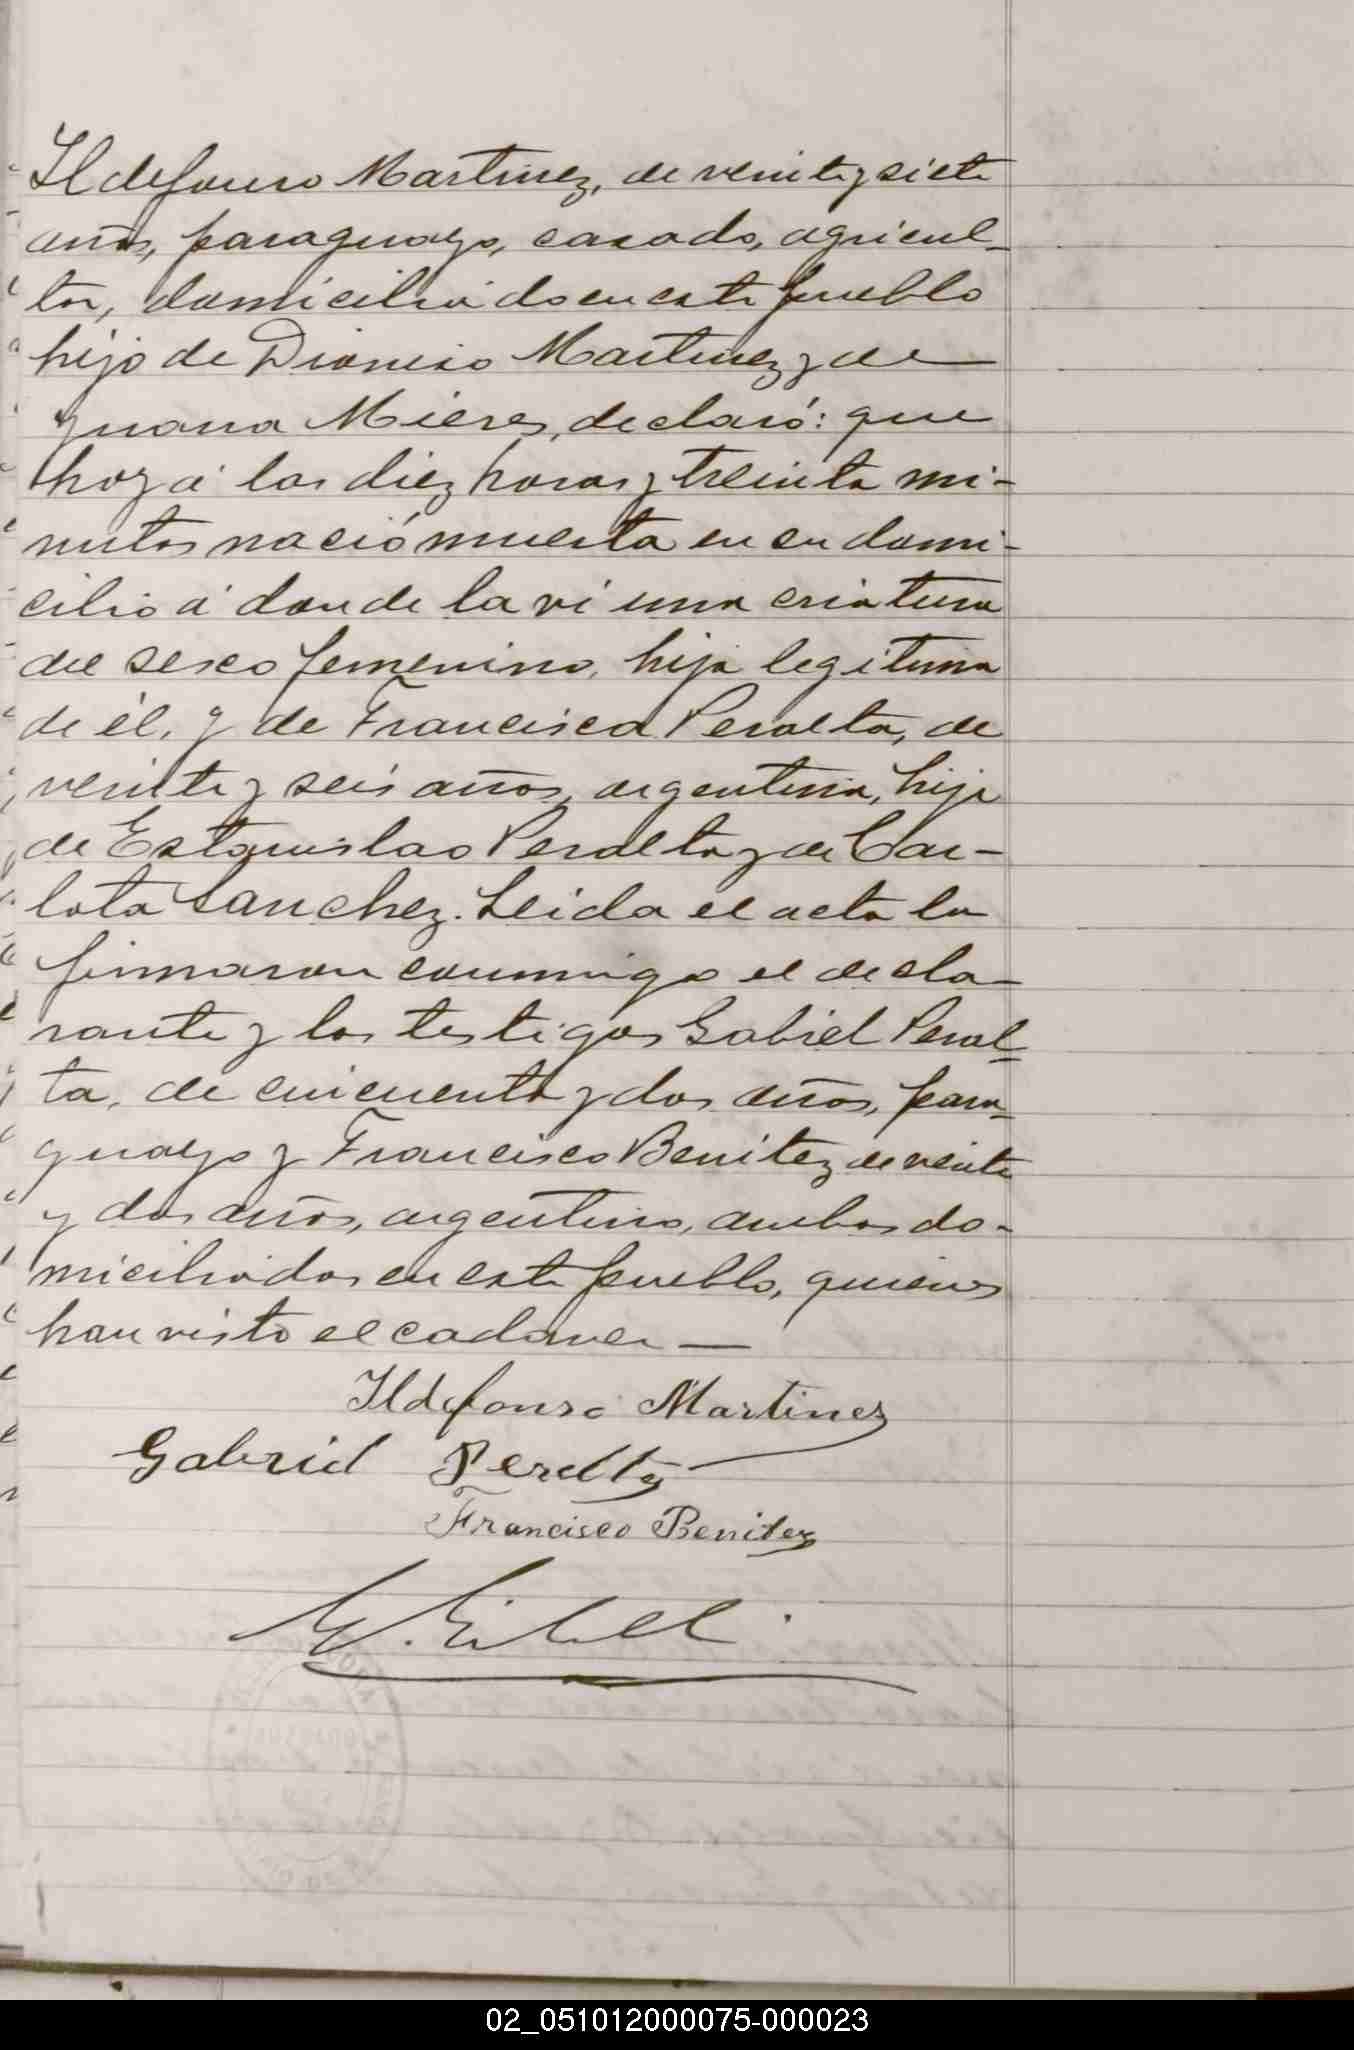 Ildefonso Martinez, de veinte y siete
años, paraguayo, casado, agricul-
tor, domiciliado en este pueblo
hijo de Dionicio Martinez y de
Juana Mieres, declaró: que
hoy á las diez horas y treinta mi-
nutos nació muerta en su domi-
cilio á donde la ví una criatura
del sexo femenino, hija legitima
de él, y de Francisca Peralta, de
veinte y seis años, argentina, hija
de Estanislao Peralta y de Car-
lota Sanchez. Leida el acta la
firmaron conmigo el decla-
rante y los testigos Gabriel Peral-
ta, de cincuenta y dos años, para-
guayo y Francisco Benitez de veinte
y dos años, argentino, ambos do-
miciliados en este pueblo, quienes
han visto el cadaver —
Ildefonso Martinez
Gabriel Peralta
Francisco Benitez
02_051012000075-000023